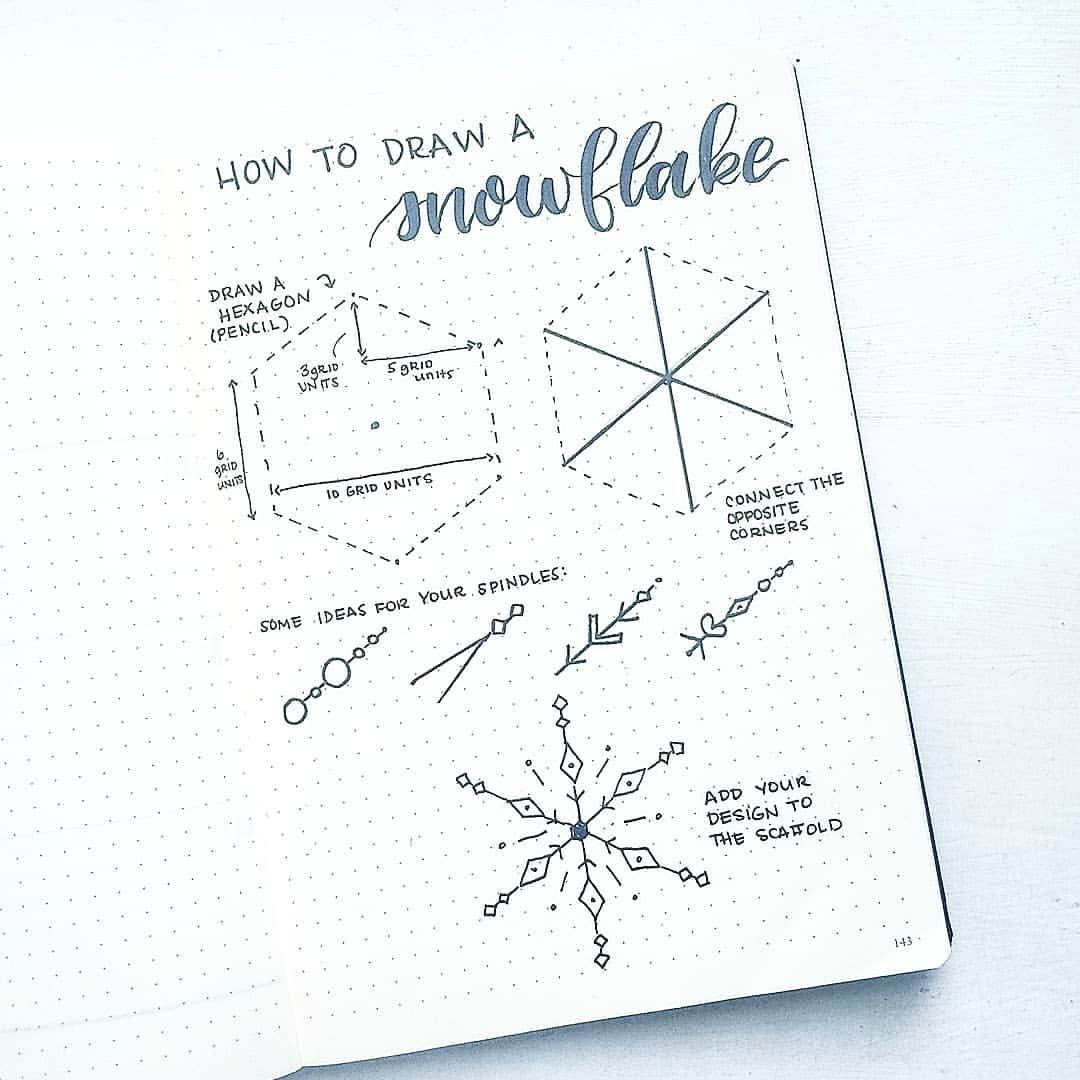 HOW TO DRAW A
snowflake
DRAW A
HEXAGON
(PENCIL)
3 GRID
UNITS
5 GRID
units
6
GRID
UNITS
10 GRID UNITS
CONNECT THE
OPPOSITE
CORNERS
SOME IDEAS FOR YOUR SPINDLES:
ADD YOUR
DESIGN TO
THE SCAFFOLD
143